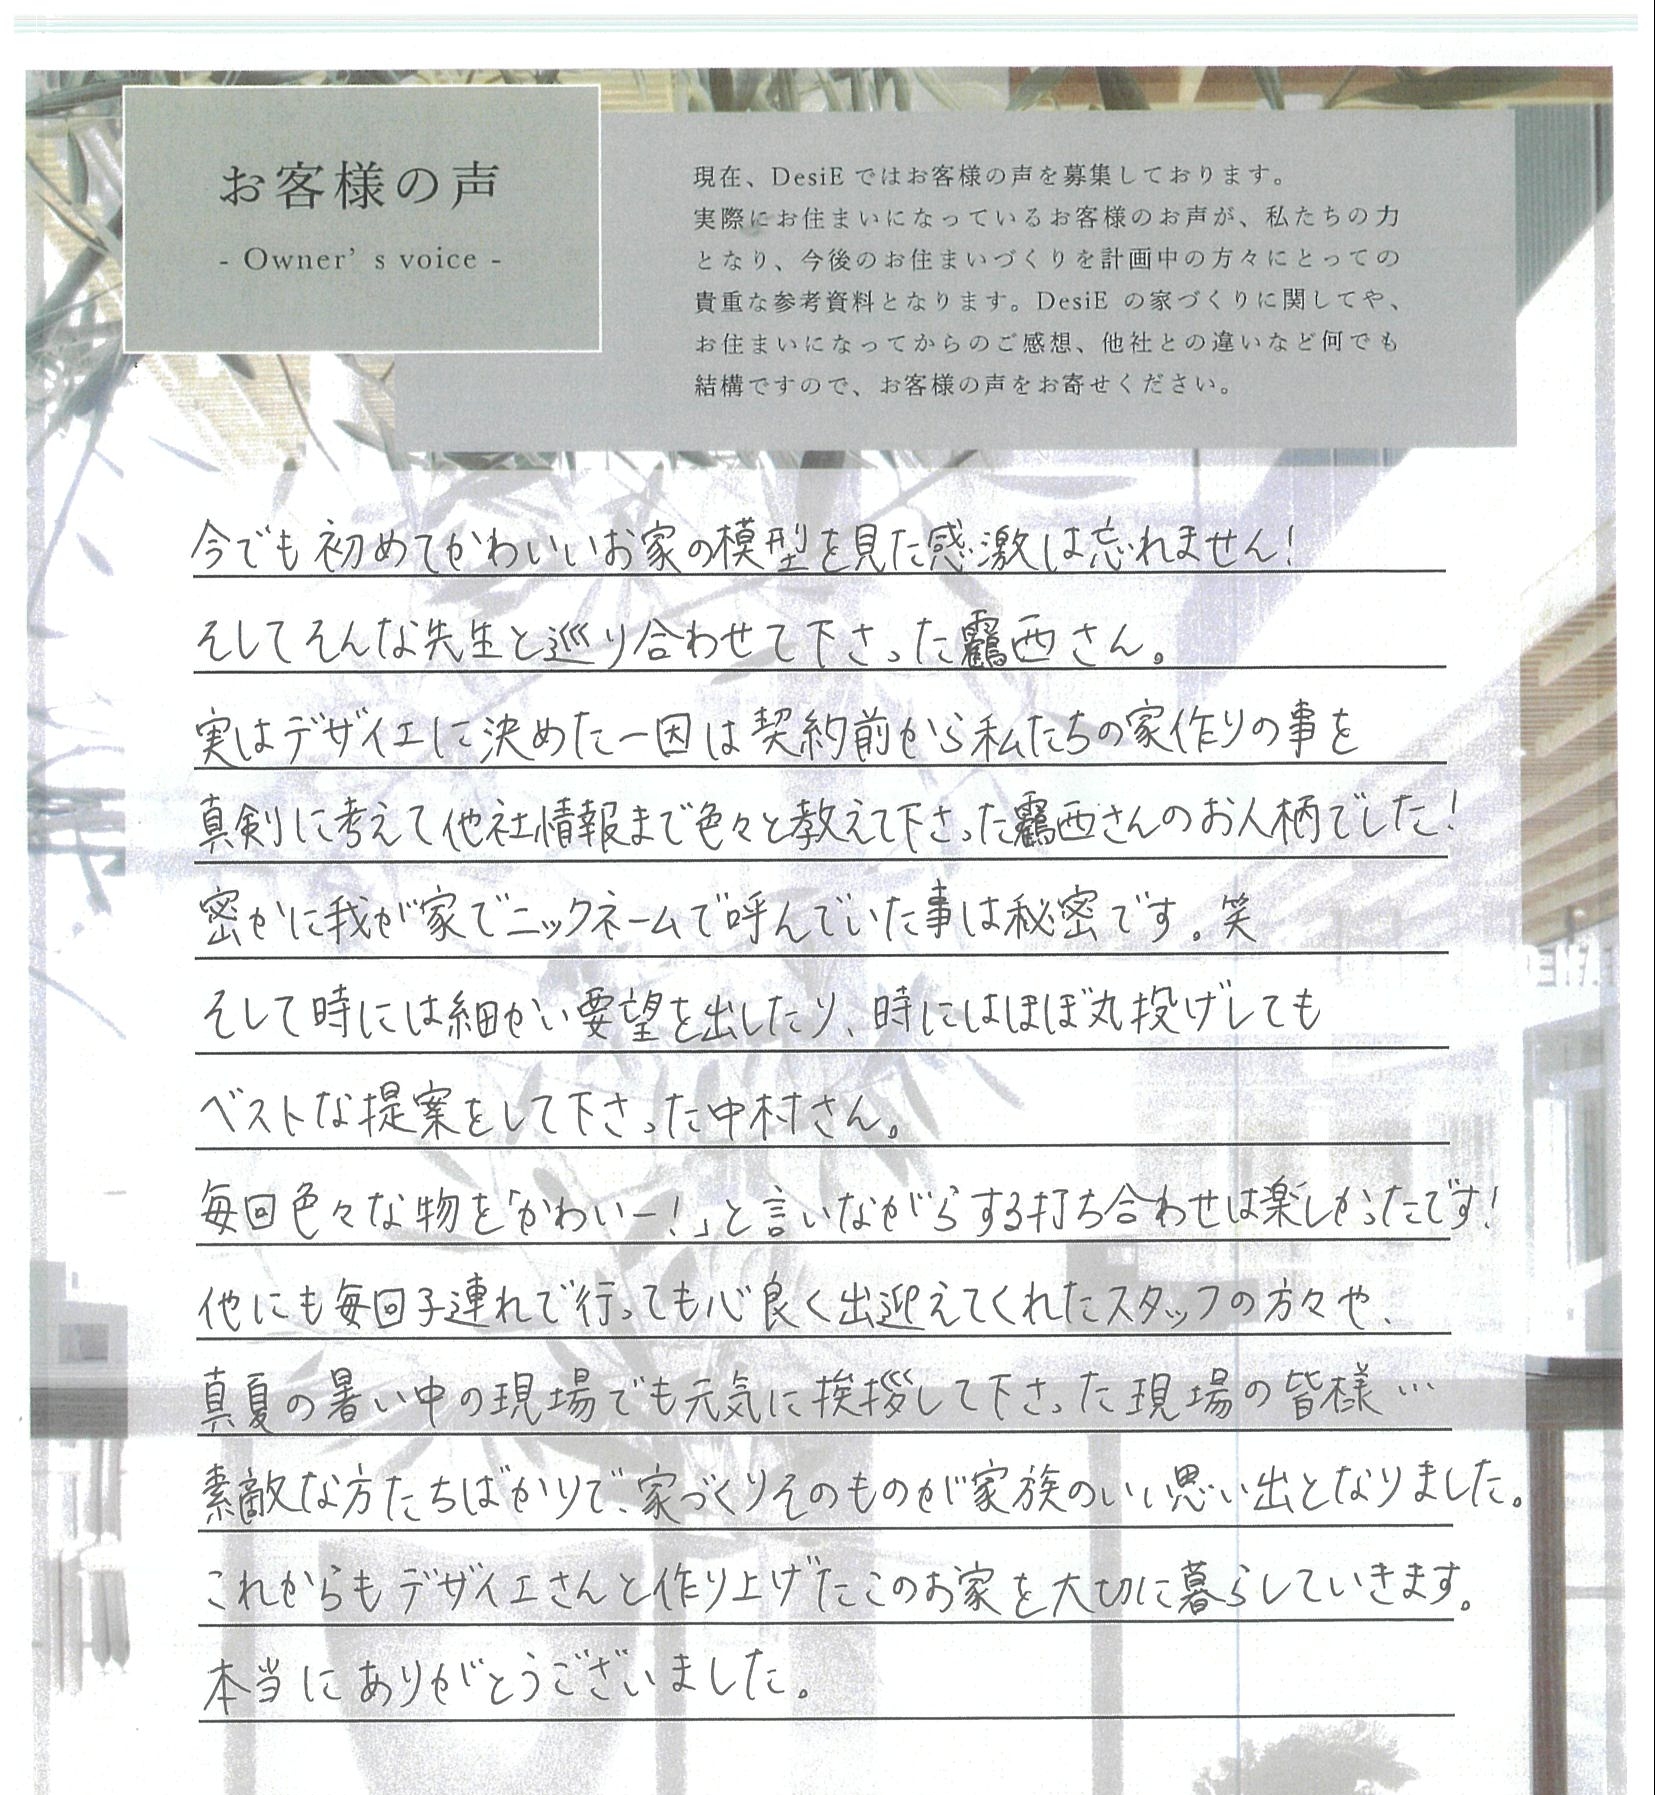 お客様の声
- Owner's voice -
現在、DesiE ではお客様の声を募集しております。
実際にお住まいになっているお客様のお声が、私たちの力
となり、今後のお住まいづくりを計画中の方々にとっての
貴重な参考資料となります。DesiE の家づくりに関してや、
お住まいになってからのご感想、他社との違いなど何でも
結構ですので、お客様の声をお寄せください。
今でも初めてかわいいお家の模型を見た感激は忘れません!
そしてそんな先生と巡り合わせて下さった靍西さん。
実はデザイエに決めた一因は契約前から私たちの家作りの事を
真剣に考えて他社情報まで色々と教えて下さった靍西さんのお人柄でした!
密かに我が家でニックネームで呼んでいた事は秘密です。笑
そして時には細かい要望を出したり、時にはほぼ丸投げしても
ベストな提案をして下さった中村さん。
毎回色々な物を「かわいー!」と言いながらする打ち合わせは楽しかったです!
他にも毎回子連れで行っても心良く出迎えてくれたスタッフの方々や、
真夏の暑い中の現場でも元気に挨拶して下さった現場の皆様…
素敵な方たちばかりで、家づくりそのものが家族のいい思い出となりました。
これからもデザイエさんと作り上げたこのお家を大切に暮らしていきます。
本当にありがとうございました。